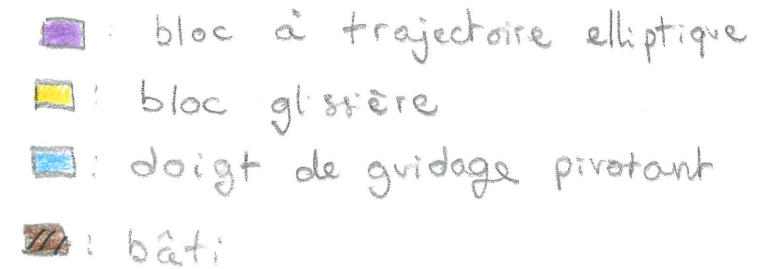 : bloc à trajectoire elliptique
: bloc glissière
: doigt de guidage pivotant
: bâti